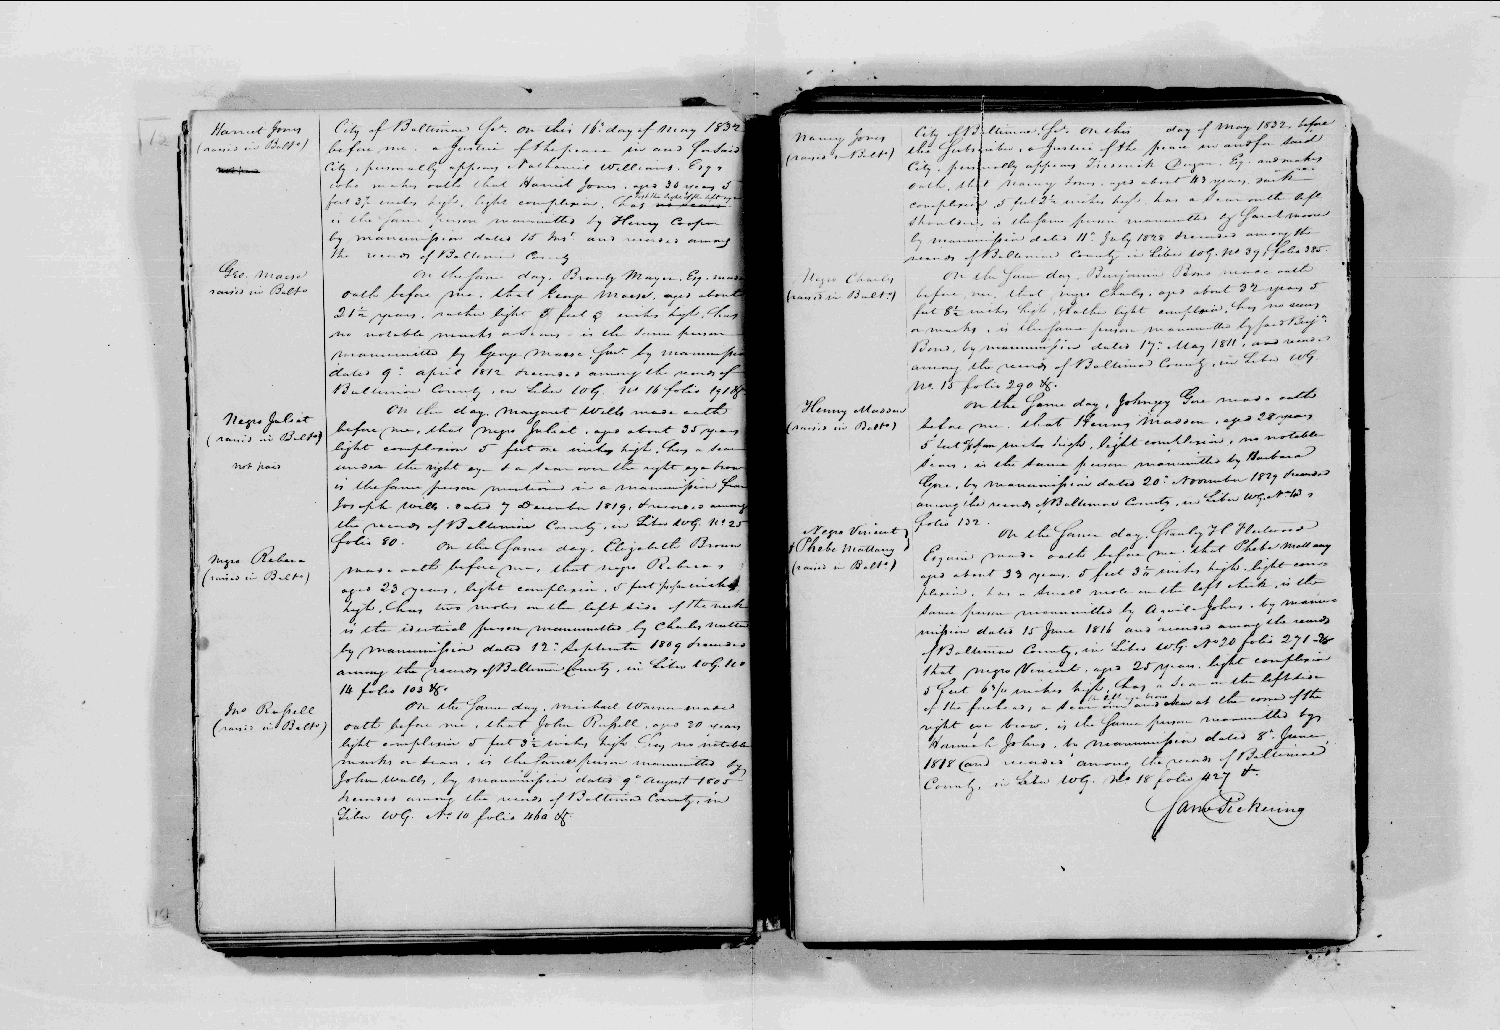 Harriet Jones
(raised in Balto)
City of Baltimore Sc. On this 16th day of May 1832
before me a Justice of the peace in and for said
City, personally appears Nathaniel Williams Esqr
who makes oath that Harriet Jones, aged 30 years 5
feet 3½ inches high, light complexion, has
is the same person manumitted by Henry Cooper
by manumission dated 15 and recorded among
the records of Baltimore County
Geo. Masse
raised in Balto
On the same day, Brantz Mayer, Esq. made
oath before me, that George Masse, aged about
21½ years, rather light 5 feet 9 inches high, has
no notable marks or scars is the same person
manumitted by George Masse Senr. by manumission
dated 9th April 1812 & recorded among the records of
Baltimore County, in Liber WG. No 16 folio 191 &c.
Negro Juliet
(raised in Balto)
not paid
On the day, Margaret Wells made oath
before me, that negro Juliet, aged about 35 years
light complexion 5 feet one inches high, has a scar
under the right eye & a scar over the right eye brow
is the same person mentioned in a manumission from
Joseph Wills, dated 7 December 1819, & recorded among
the records of Baltimore County, in Liber WG No 25
folio 80.
Negro Rebecca
(raised in Balto)
On the same day, Elizabeth Brown
made oath before me, that negro Rebecca
aged 23 years, light complexion, 5 feet inches
high, has two moles on the left side of the neck
is the identical person manumitted by Charles
by manumission dated 12th September 1809 & recorded
among the records of Baltimore County, in Liber WG. No
14 folio 103 &c.
Jno Russell
(raised in Balto)
On the same day, Michael Warner made
oath before me, that John Russell, aged 30 years
light complexion 5 feet 3½ inches high has no notable
marks or scars, is the same person manumitted by
John Walls, by manumission dated 9th August 1805
& recorded among the records of Baltimore County, in
Liber WG. No 10 folio 460 &c.
Nancy Jones
(raised in Balto)
City of Baltimore Sc. On this day of May 1832, before
the Subscriber, a Justice of the peace in and for said
City, personally appears Frederick Esq. and makes
oath, that Nancy Jones, aged about 43 years, dark
complexion 5 feet 2½ inches high has a scar on the left
shoulder, is the same person manumitted by Sarah Moore
by manumission dated 11th July 1828 & recorded among the
records of Baltimore County in Liber WG. No 39 folio 385.
Negro Charles
(raised in Balto)
On the same day, Benjamin Bond made oath
before me, that negro Charles, aged about 32 years 5
feet 8½ inches high, rather light complexion, has no scars
or marks, is the same person manumitted by said Benjn
Bond, by manumission dated 17th May 1811, and recorded
among the records of Baltimore County, in Liber WG.
No. 15 folio 290 &c.
Henny Masson
(raised in Balto)
On the same day, Johnzey Gore made oath
before me that Henny Masson, aged 28 years
5 feet inches high, light complexion, no notable
scars, is the same person manumitted by Barbara
Gore, by manumission dated 20th November 1829 & recorded
among the records of Baltimore County, in Liber WG. No 43
folio 132.
Negro Vincent
& Phebe Mattany
(raised in Balto)
On the same day, Stanly H Fleetwood
Esquire made oath before me that Phebe Mattany
aged about 33 years, 5 feet 3½ inches high, light com-
plexion, has a small mole on the left cheek, is the
same person manumitted by Johns, by manu-
mission dated 15 June 1816 and recorded among the records
of Baltimore County, in Liber WG. No 20 folio 271 &c
that negro Vincent, aged 25 years, light complexion
5 feet inches high, has a scar on the left side
of the forehead, a scar at the corner of the
right eye brow, is the same person manumitted by
Hannah Johns, by manumission dated 8th June
1818 (and recorded among the records of Baltimore
County, in Liber WG. No 18 folio 427 &c.
Jams Pickering